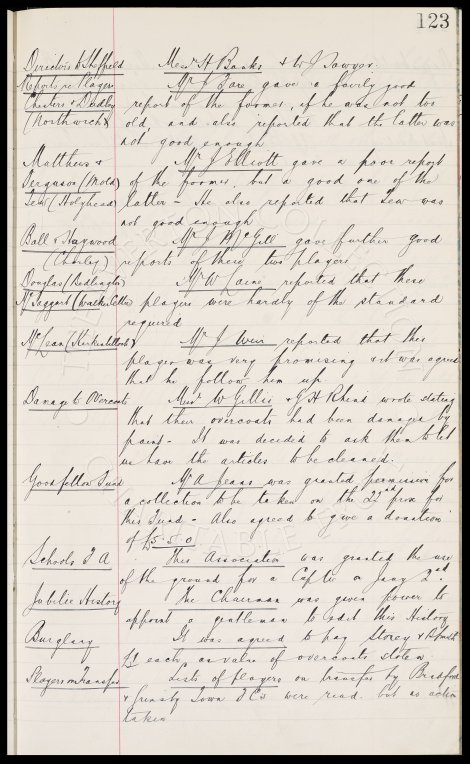 123
Directors to Sheffield Messrs H Banks & W J Sawyer.
Reports re Players Mr J gave a fairly good
Chesters & Dudley report of the former, if he was not too
(Northwich) old, and also reported that the latter was
not good enough
Matthews & Mr J Ellicott gave a poor report
Ferguson (Mold) of the former, but a good one of the
Tew (Holyhead) latter - He also reported that Tew was
not good enough
Ball & Haywood Mr J McGill gave further good
(Chorley) reports of these two players
Douglas (Bedlington) Mr W reported that these
McTaggart (Walker Celtic) players were hardly of the standard
required
McLean (Kirkintilloch) Mr J Weir reported that this
player was very promising & it was agreed
that he follow him up.
Damage to Overcoats Messrs W Gillies & G H wrote stating
that their overcoats had been damaged by
paint - It was decided to ask them to let
us have the articles to be cleaned.
Goodfellow Fund Mr A Jeans was granted permission for
a collection to be taken on the prox for
this Fund - Also agreed to give a donation
of £5.5.0
Schools F A This Association was granted the use
of the ground for a Cup tie on Jany 2nd.
Jubilee History The Chairman was given power to
appoint a gentleman to edit this History
Burglary It was agreed to pay Storey &
each, as value of overcoats stolen
Players on Transfer Lists of Players on transfer by Bradford
& Grimsby Town FC's were read, but no action
taken